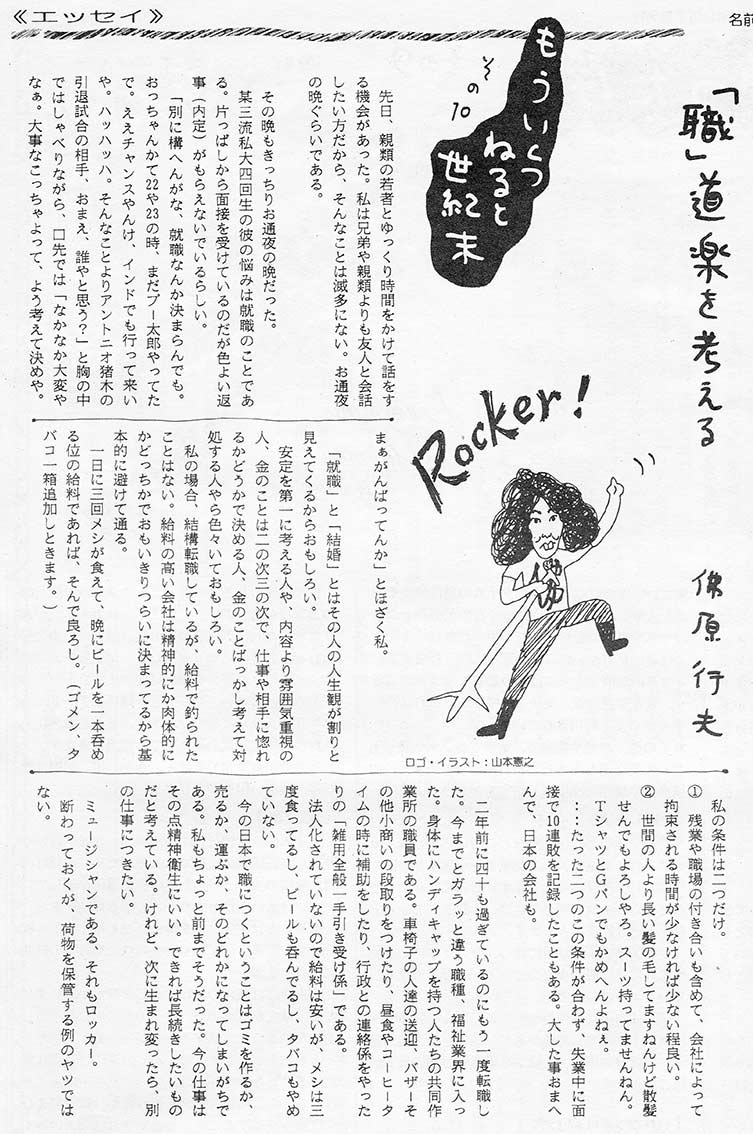 《エッセイ》
名前
「職」道楽を考える
俣原行夫
もういくつ
ねると
世紀末
その10
Rocker!
ロゴ・イラスト:山本憲之
先日、親類の若者とゆっくり時間をかけて話をす
る機会があった。私は兄弟や親類よりも友人と会話
したい方だから、そんなことは滅多にない。お通夜
の晩ぐらいである。
その晩もきっちりお通夜の晩だった。
某三流私大四回生の彼の悩みは就職のことであ
る。片っぱしから面接を受けているのだが色よい返
事(内定)がもらえないでいるらしい。
「別に構へんがな、就職なんか決まらんでも。
おっちゃんかて22や23の時、まだプー太郎やってた
で。ええチャンスやんけ、インドでも行って来い
や。ハッハッハ。そんなことよりアントニオ猪木の
引退試合の相手、おまえ、誰やと思う?」と胸の中
ではしゃべりながら、口先では「なかなか大変や
なぁ。大事なこっちゃよって、よう考えて決めや。
まぁがんばってんか」とほざく私。
「就職」と「結婚」とはその人の人生観が割りと
見えてくるからおもしろい。
安定を第一に考える人や、内容より雰囲気重視の
人、金のことは二の次三の次で、仕事や相手に惚れ
るかどうかで決める人、金のことばっかし考えて対
処する人やら色々いておもしろい。
私の場合、結構転職しているが、給料で釣られた
ことはない。給料の高い会社は精神的にか肉体的に
かどっちかでおもいきりつらいに決まってるから基
本的に避けて通る。
一日に三回メシが食えて、晩にビールを一本呑め
る位の給料であれば、そんで良ろし。(ゴメン、タ
バコ一箱追加しときます。)
私の条件は二つだけ。
① 残業や職場の付き合いも含めて、会社によって
拘束される時間が少なければ少ない程良い。
② 世間の人より長い髪の毛してますねんけど散髪
せんでもよろしやろ。スーツ持ってませんねん。
TシャツとGパンでもかめへんよねぇ。
…たった二つのこの条件が合わず、失業中に面
接で10連敗を記録したこともある。大した事おまへ
んで、日本の会社も。
二年前に四十も過ぎているのにもう一度転職し
た。今までとガラッと違う職種、福祉業界に入っ
た。身体にハンディキャップを持つ人たちの共同作
業所の職員である。車椅子の人達の送迎、バザーそ
の他小商いの段取りをつけたり、昼食やコーヒータ
イムの時に補助をしたり、行政との連絡係をやった
りの「雑用全般一手引き受け係」である。
法人化されていないので給料は安いが、メシは三
度食ってるし、ビールも呑んでるし、タバコもやめ
ていない。
今の日本で職につくということはゴミを作るか、
売るか、運ぶか、そのどれかになってしまいがちで
ある。私もちょっと前までそうだった。今の仕事は
その点精神衛生にいい。できれば長続きしたいもの
だと考えている。けれど、次に生まれ変ったら、別
の仕事につきたい。
ミュージシャンである、それもロッカー。
断わっておくが、荷物を保管する例のヤツでは
ない。